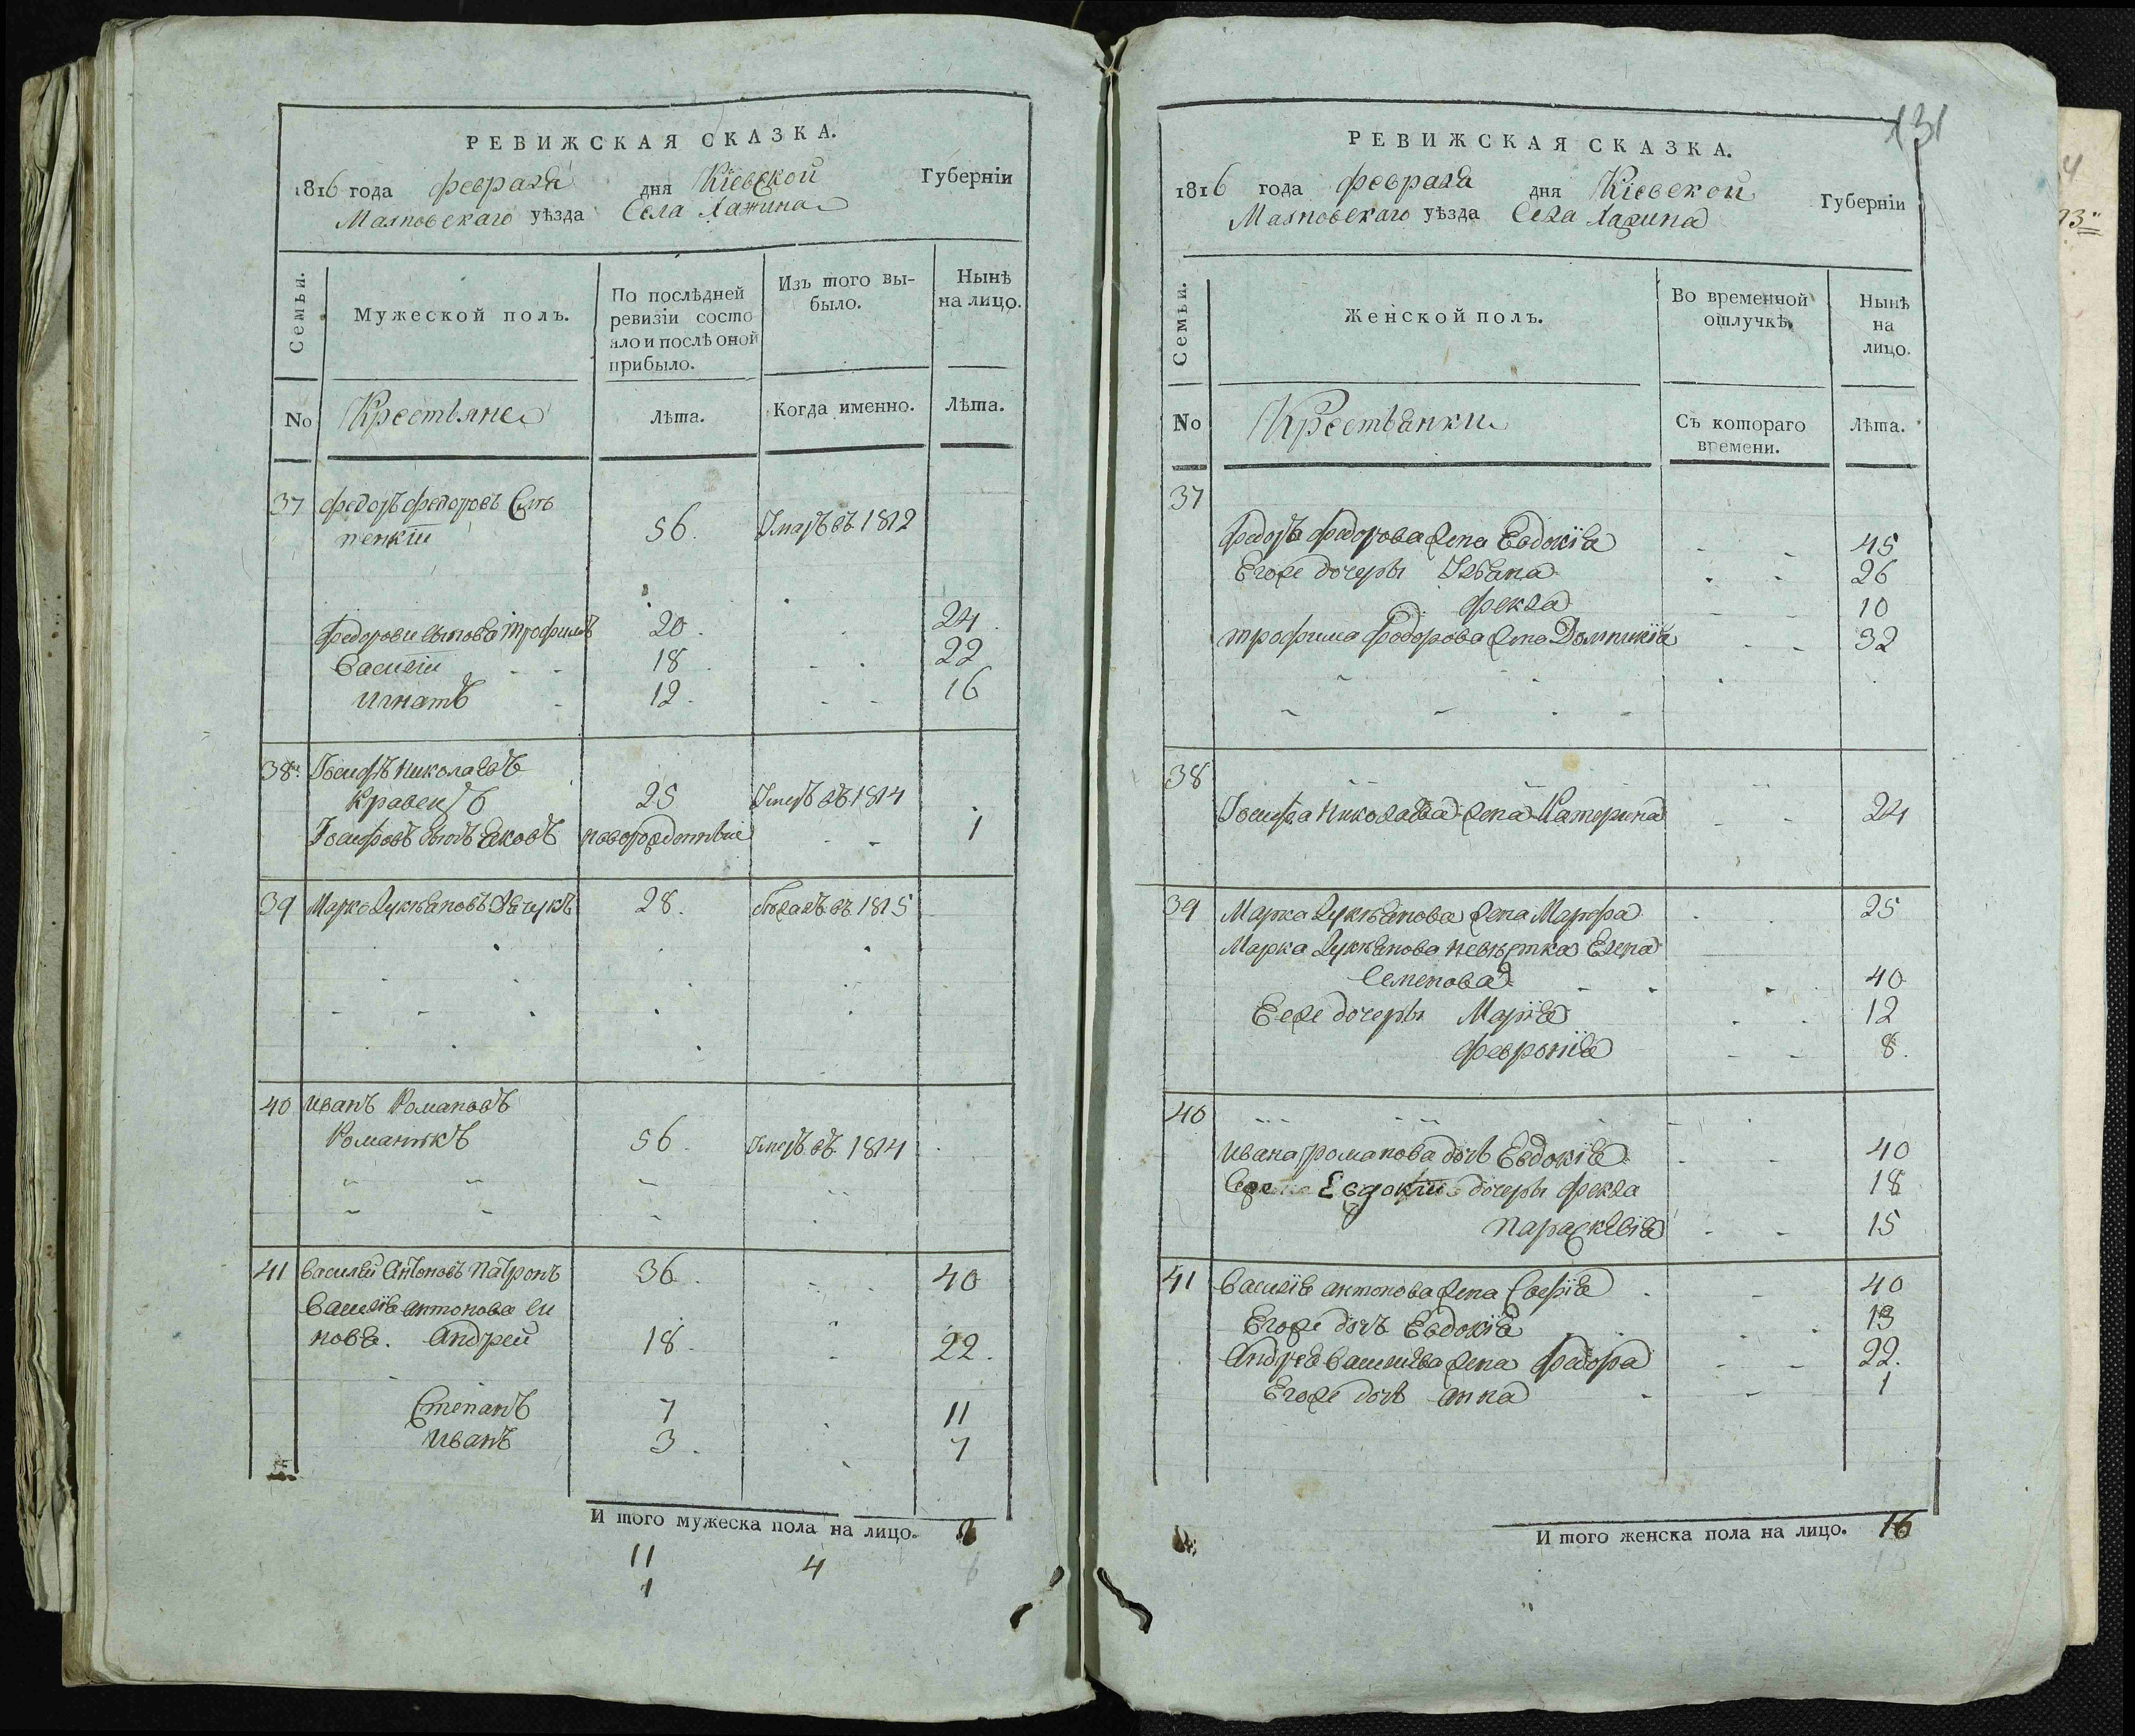 РЕВИЖСКАЯ СКАЗКА.
1816 года февраля дня Кіевской Губерніи
Махновскаго уѣзда Села Хажина
Семьи.
Мужеской полъ.
По послѣдней ревизіи состо
яло и послѣ оной
прибыло.
Изъ того вы-
было.
Нынѣ
на лицо.
No
Крестьяне
Лѣта.
Когда именно.
Лѣта.
37 Федоръ Федоровъ
56. Умаръ въ 1812
Федоровы Сынова Трофимъ 20. 24.
Василіи 18 22
Игнатъ 12. 16
38. Іосифъ Николаевъ
Кравецъ 25 Умеръ въ 1814
Іосифовъ Сынъ Яковъ новорожденные 1
39 Марко Лукяновъ 28. бѣжалъ въ 1815
40 Иванъ Романовъ
Романюкъ 56. Умеръ въ 1814
41 Василеи Антоновъ Патронъ 36. 40
Василія антонова си
новя. Андрей 18. 22.
Степанъ 7 11
Иванъ 3. 7
И того мужеска пола на лицо.
11 4
1
131
РЕВИЖСКАЯ СКАЗКА.
1816 года февраля дня Кіевской Губерніи
Махновскаго уѣзда Села Хажина
Семьи.
Женской полъ.
Во временной
отлучкѣ.
Нынѣ
на
лицо.
No
Крестянки
Съ котораго
времени.
Лѣта.
37
Федора Федорова жена Евдокія 45
Егоже дочеры Уляна 26
Фекла 10
Трофима Федорова жена Домникія 32
38
Іосифа Николаева жена Катерина 24
39 Марка Лукянова жена Марфа 25
Марка Лукянова невѣстка Елена
Семенова 40
Еяже дочеры Марія 12
Февронія 8.
40
Ивана романова дочь Евдокія 40
Евдокіи дочеры Фекла 18
Параскевія 15
41 Василія антонова жена Софія 40
Егоже дочъ Евдокія 13
Андрея Василева жена Федора 22.
Егоже дочь анна 1
И того женска пола на лицо. 16